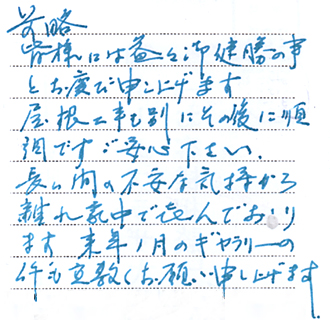 前略
皆様には益々御健勝の事
とお慶び申し上げます
屋根工事も別にその後に順
調です ご安心下さい、
長い間の不安な気持から
離れ家中で喜んでおり
ます 来年1月のギャラリーの
件も宜敷くお願い申し上げます